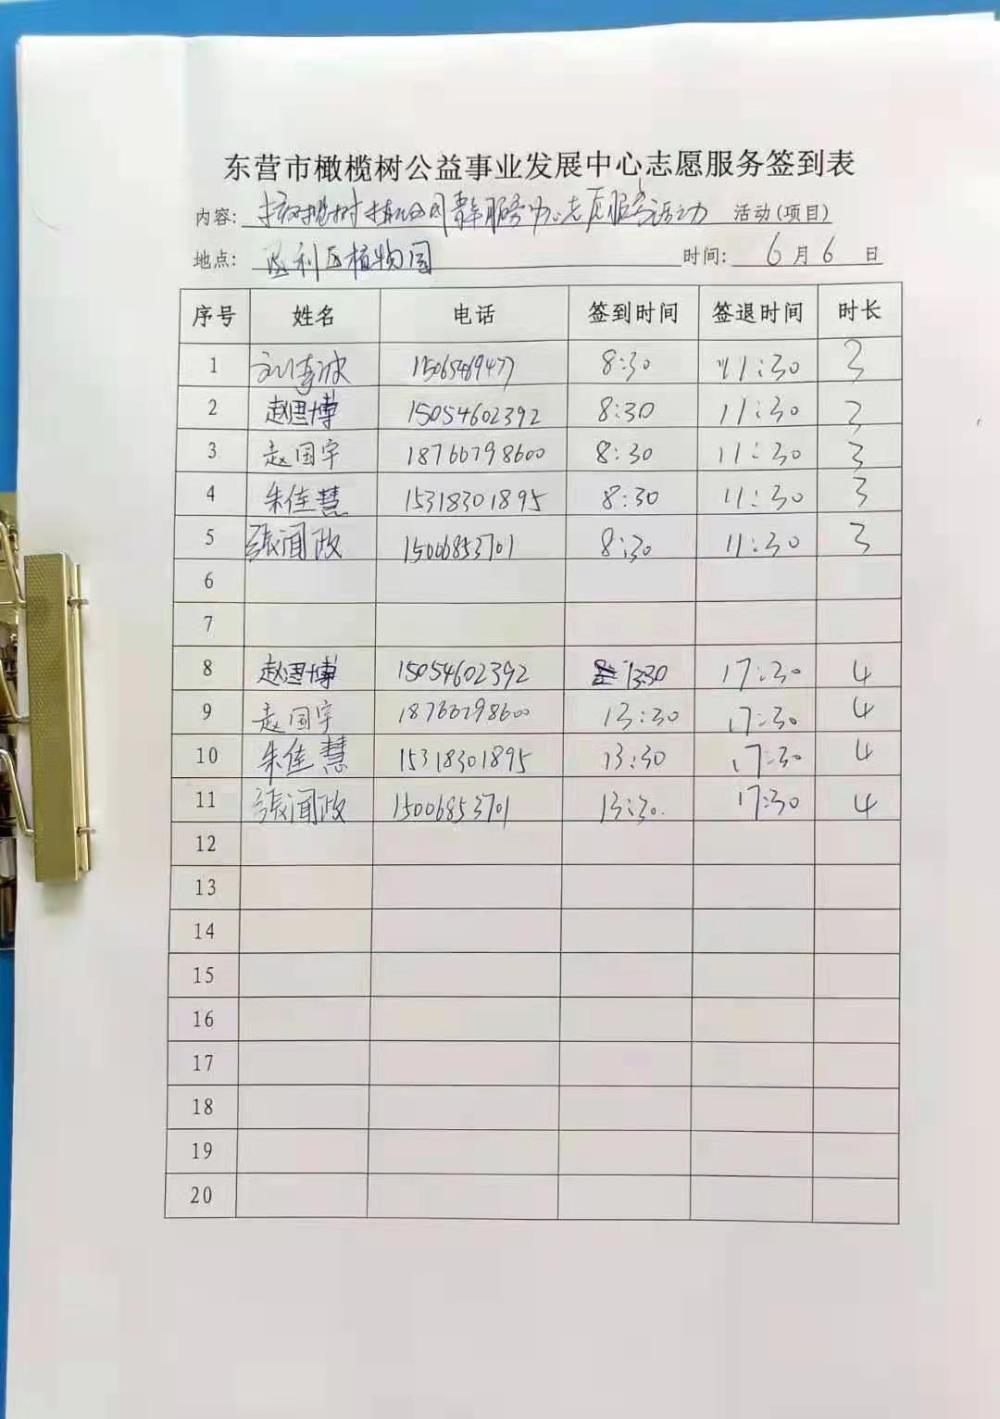 东营市橄榄树公益事业发展中心志愿服务签到表
内容: 服务中心志愿服务活动 活动(项目)
地点: 垦利区植物园 时间: 6月6日
序号 姓名 电话 签到时间 签退时间 时长
1 15065469477 8:30 11:30 3
2 赵思博 15054602392 8:30 11:30 3
3 赵国宇 18766798600 8:30 11:30 3
4 朱佳慧 15318301895 8:30 11:30 3
5 张闻政 15006853701 8:30 11:30 3
6
7
8 赵思博 15054602392 13:30 17:30 4
9 赵国宇 18766798600 13:30 17:30 4
10 朱佳慧 15318301895 13:30 17:30 4
11 张闻政 15006853701 13:30. 17:30 4
12
13
14
15
16
17
18
19
20